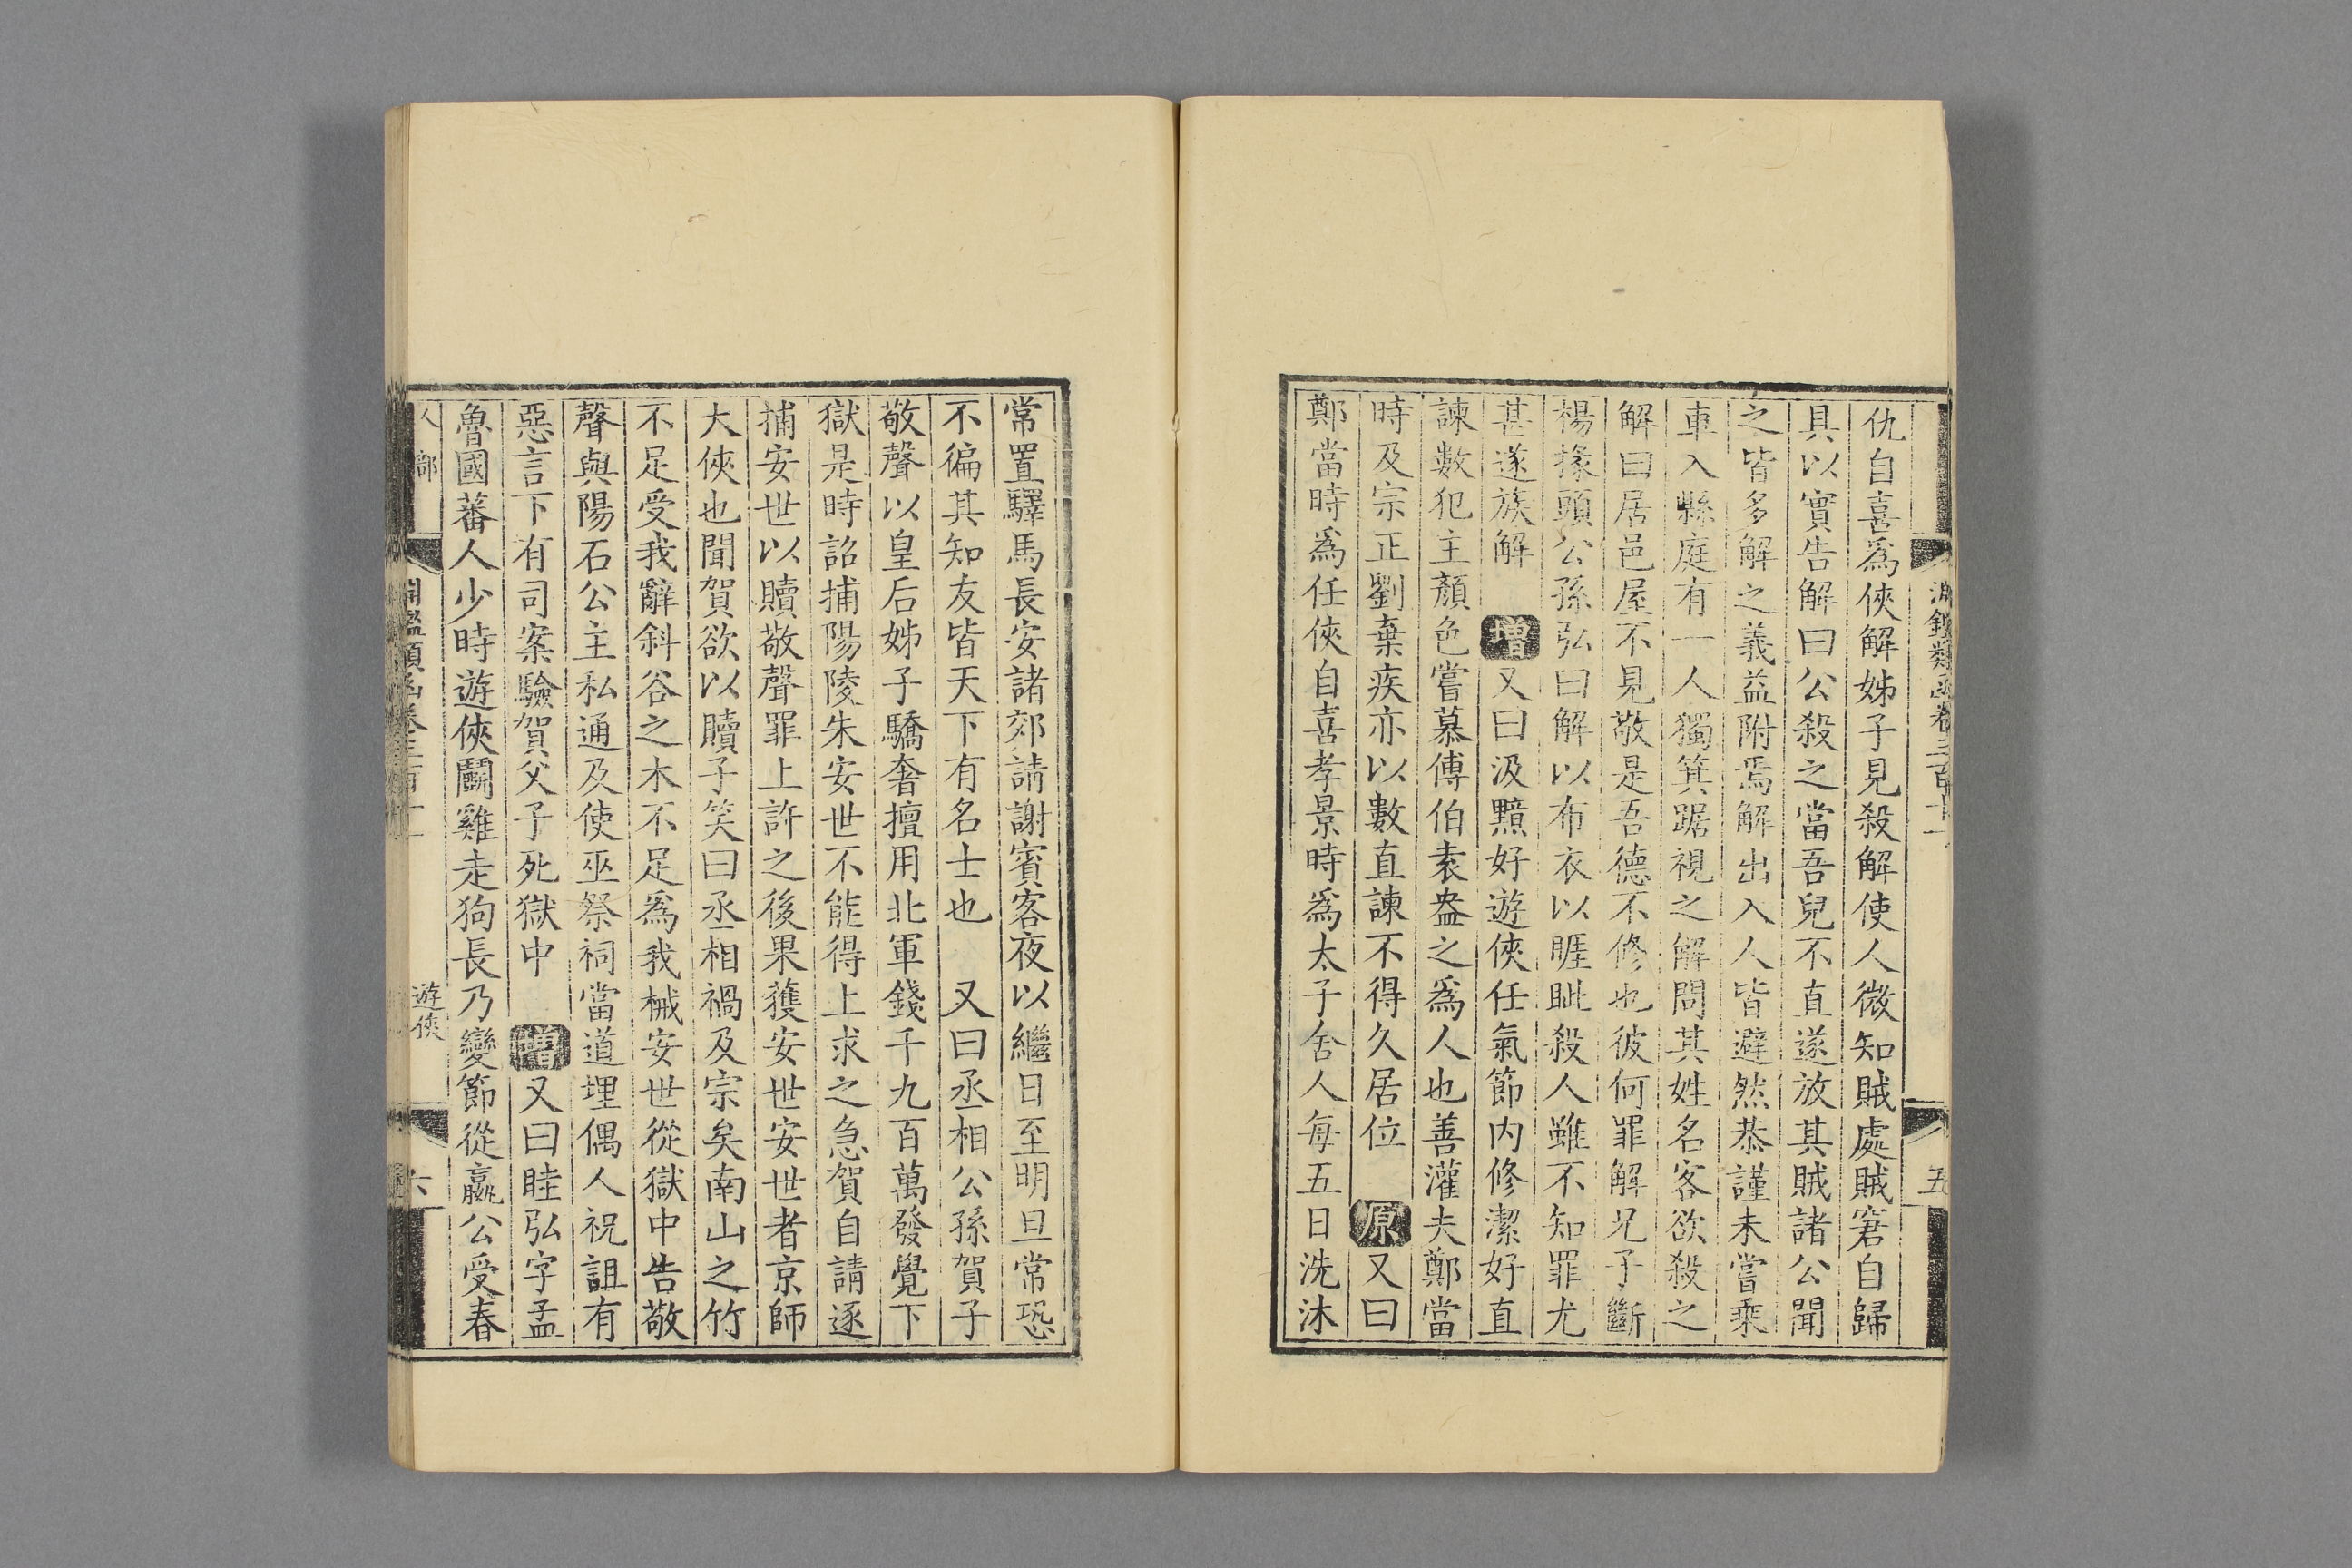 淵鑑類函卷三百十一
五
仇自喜爲俠解姊子見殺解使人微知賊處賊窘自歸
具以實告解曰公殺之當吾兒不直遂放其賊諸公聞
之皆多解之義益附焉解出入人皆避然恭謹未嘗乘
車入縣庭有一人獨箕踞視之解問其姓名客欲殺之
解曰居邑屋不見敬是吾德不修也彼何罪解兄子斷
楊掾頭公孫弘曰解以布衣以睚眦殺人雖不知罪尤
甚遂族解 增又曰汲黯好遊俠任氣節内修潔好直
諫數犯主顏色嘗慕傅伯袁盎之爲人也善灌夫鄭當
時及宗正劉棄疾亦以數直諫不得久居位 原又曰
鄭當時爲任俠自喜孝景時爲太子舍人每五日洗沐
常置驛馬長安諸郊請謝賓客夜以繼日至明旦常恐
不徧其知友皆天下有名士也 又曰丞相公孫賀子
敬聲以皇后姊子驕奢擅用北軍錢千九百萬發覺下
獄是時詔捕陽陵朱安世不能得上求之急賀自請逐
捕安世以贖敬聲罪上許之後果獲安世安世者京師
大俠也聞賀欲以贖子笑曰丞相禍及宗矣南山之竹
不足受我辭斜谷之木不足爲我械安世從獄中告敬
聲與陽石公主私通及使巫祭祠當道埋偶人祝詛有
惡言下有司案驗賀父子死獄中 增又曰眭弘字孟
魯國蕃人少時遊俠鬭雞走狗長乃變節從嬴公受春
人部
淵鑑類函卷三百十一
遊俠
六